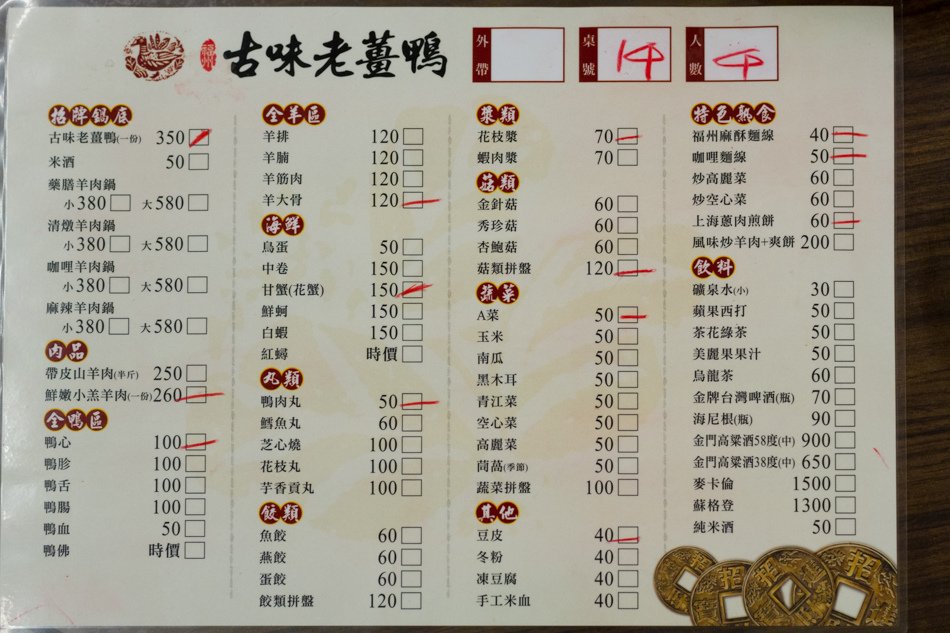 古味老薑鴨
外帶
桌號
人數
招牌鍋底
古味老薑鴨(一份) 350
米酒 50
藥膳羊肉鍋
小380 大580
清燉羊肉鍋
小380 大580
咖哩羊肉鍋
小380 大580
麻辣羊肉鍋
小380 大580
肉品
帶皮山羊肉(半斤) 250
鮮嫩小羔羊肉(一份) 260
全鴨區
鴨心 100
鴨胗 100
鴨舌 100
鴨腸 100
鴨血 50
鴨佛 時價
全羊區
羊排 120
羊腩 120
羊筋肉 120
羊大骨 120
海鮮
鳥蛋 50
中卷 150
甘蟹(花蟹) 150
鮮蚵 150
白蝦 150
紅蟳 時價
丸類
鴨肉丸 50
鱈魚丸 60
芝心燒 100
花枝丸 100
芋香貢丸 100
餃類
魚餃 60
燕餃 60
蛋餃 60
餃類拼盤 120
漿類
花枝漿 70
蝦肉漿 70
菇類
金針菇 60
秀珍菇 60
杏鮑菇 60
菇類拼盤 120
蔬菜
A菜 50
玉米 50
南瓜 50
黑木耳 50
青江菜 50
空心菜 50
高麗菜 50
茼萵(季節) 50
蔬菜拼盤 100
其他
豆皮 40
冬粉 40
凍豆腐 40
手工米血 40
特色熟食
福州麻酥麵線 40
咖哩麵線 50
炒高麗菜 60
炒空心菜 60
上海蔥肉煎餅 60
風味炒羊肉+爽餅 200
飲料
礦泉水(小) 30
蘋果西打 50
茶花綠茶 50
美麗果果汁 50
烏龍茶 60
金牌台灣啤酒(瓶) 70
海尼根(瓶) 90
金門高粱酒58度(中) 900
金門高粱酒38度(中) 650
麥卡倫 1500
蘇格登 1300
純米酒 50